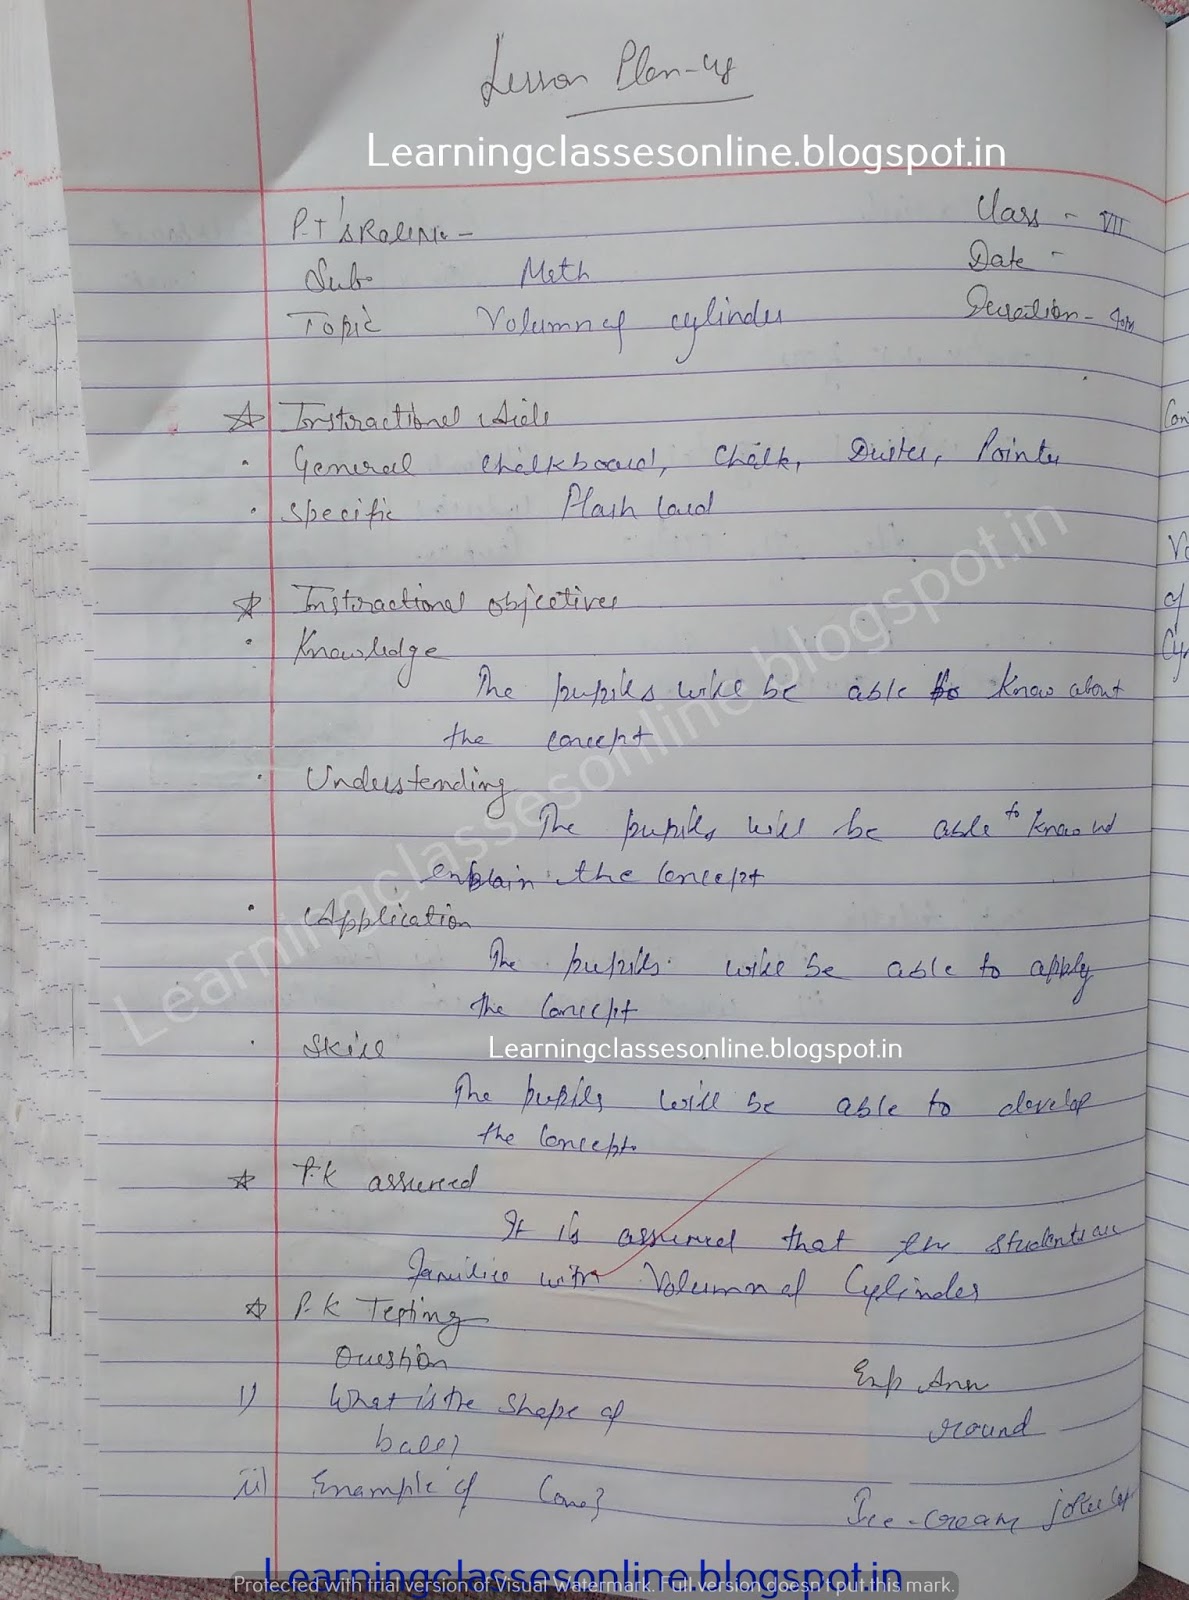 Lesson Plan-
Learningclassesonline.blogspot.in
P.T's Roll No -
Class - VII
Sub
Math
Date -
Topic
Volumn of cylinder
Duration -
Instractional Aids
General chalkboard, chalk, Duster, Pointer
Specific Flash Card
Instractional objectives
Knowledge
The pupils will be able to know about
the concept
Understanding
The pupils will be able to know
explain the concept
Application
The pupils will be able to apply
the concept
Skill
Learningclassesonline.blogspot.in
The pupils will be able to develop
the concept.
P.K assumed
It is assumed that the students are
with Volumn of Cylinder
P.K Testing
Question
Exp Ans
i) What is the shape of
round
ball?
ii) Example of Cone?
Ice-cream joker cap
Learningclassesonline.blogspot.in
Learningclassesonline.blogspot.in
Protected with trial version of Visual Watermark. Full version doesn't put this mark.